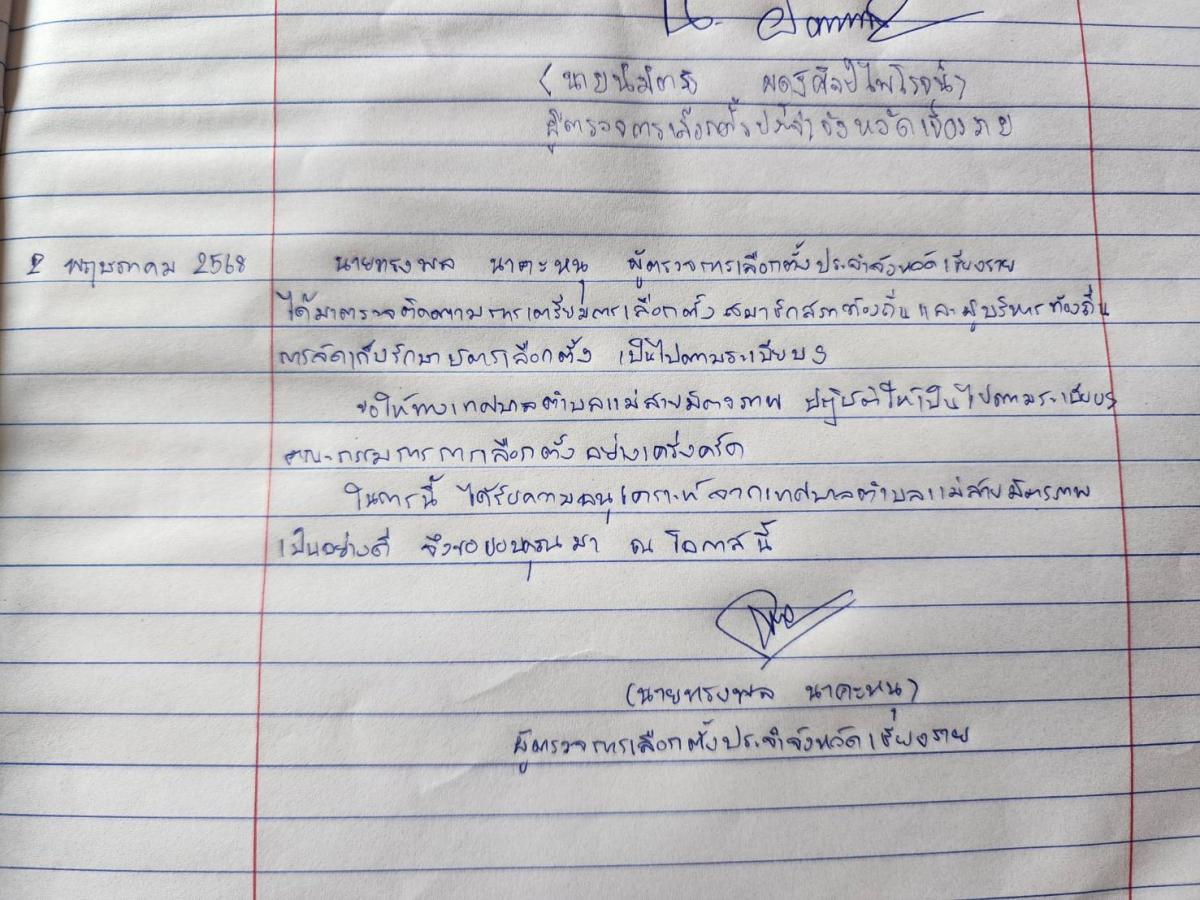 (นายนิมิตร ผดุงศิลป์ไพโรจน์)
ผู้ตรวจการเลือกตั้งประจำจังหวัดเชียงราย
2 พฤษภาคม 2568 นายทรงพล นาคะหนุ ผู้ตรวจการเลือกตั้งประจำจังหวัดเชียงราย
ได้มาตรวจติดตามการเตรียมการเลือกตั้ง สมาชิกสภาท้องถิ่น และผู้บริหารท้องถิ่น
การจัดเก็บรักษาบัตรเลือกตั้ง เป็นไปตามระเบียบฯ
ขอให้ทางเทศบาลตำบลแม่สายมิตรภาพ ปฏิบัติให้เป็นไปตามระเบียบฯ
คณะกรรมการการเลือกตั้ง อย่างเคร่งครัด
ในการนี้ ได้รับความอนุเคราะห์จากเทศบาลตำบลแม่สายมิตรภาพ
เป็นอย่างดี จึงขอขอบคุณมา ณ โอกาสนี้
(นายทรงพล นาคะหนุ)
ผู้ตรวจการเลือกตั้งประจำจังหวัดเชียงราย